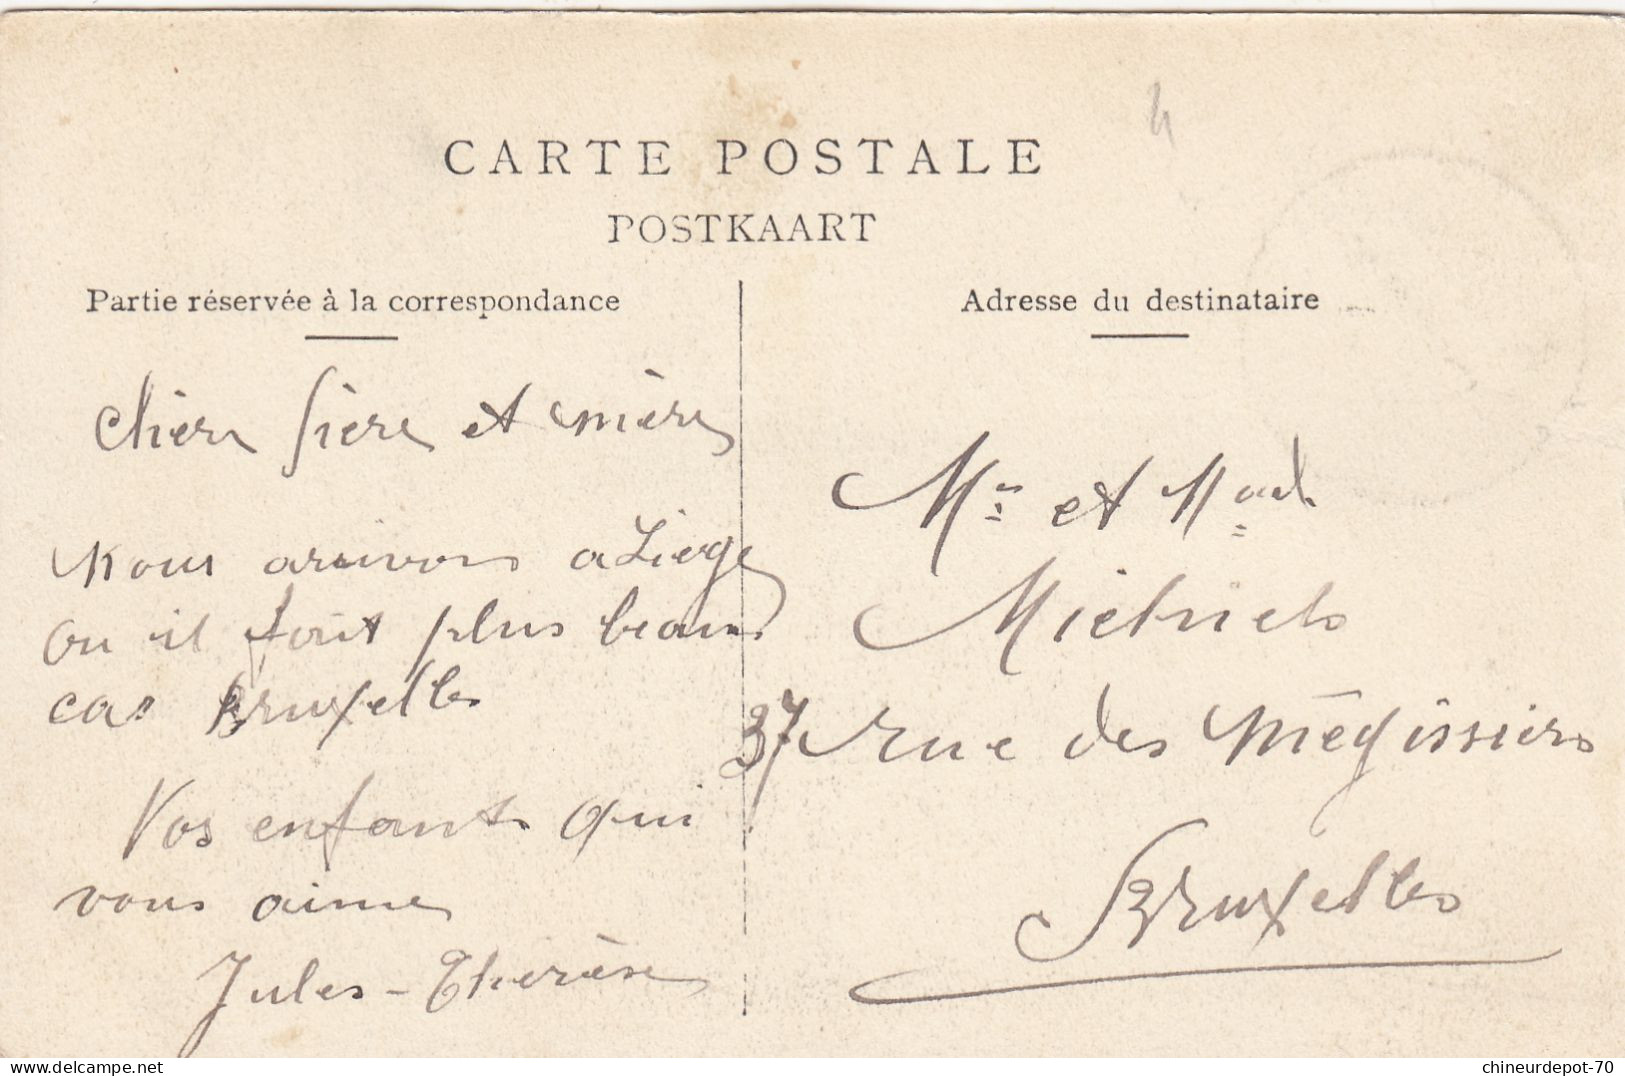 CARTE POSTALE
POSTKAART
Partie réservée à la correspondance
Adresse du destinataire
chèr père et mère
Nous arrivons a Liége
ou il fait plus beau
car Bruxelles
Vos enfants qui
vous aime
Jules - Therèse
Mr et Mad
Michiels
37 rue des Mégissiers
Bruxelles
delcampe.net
chineurdepot-70